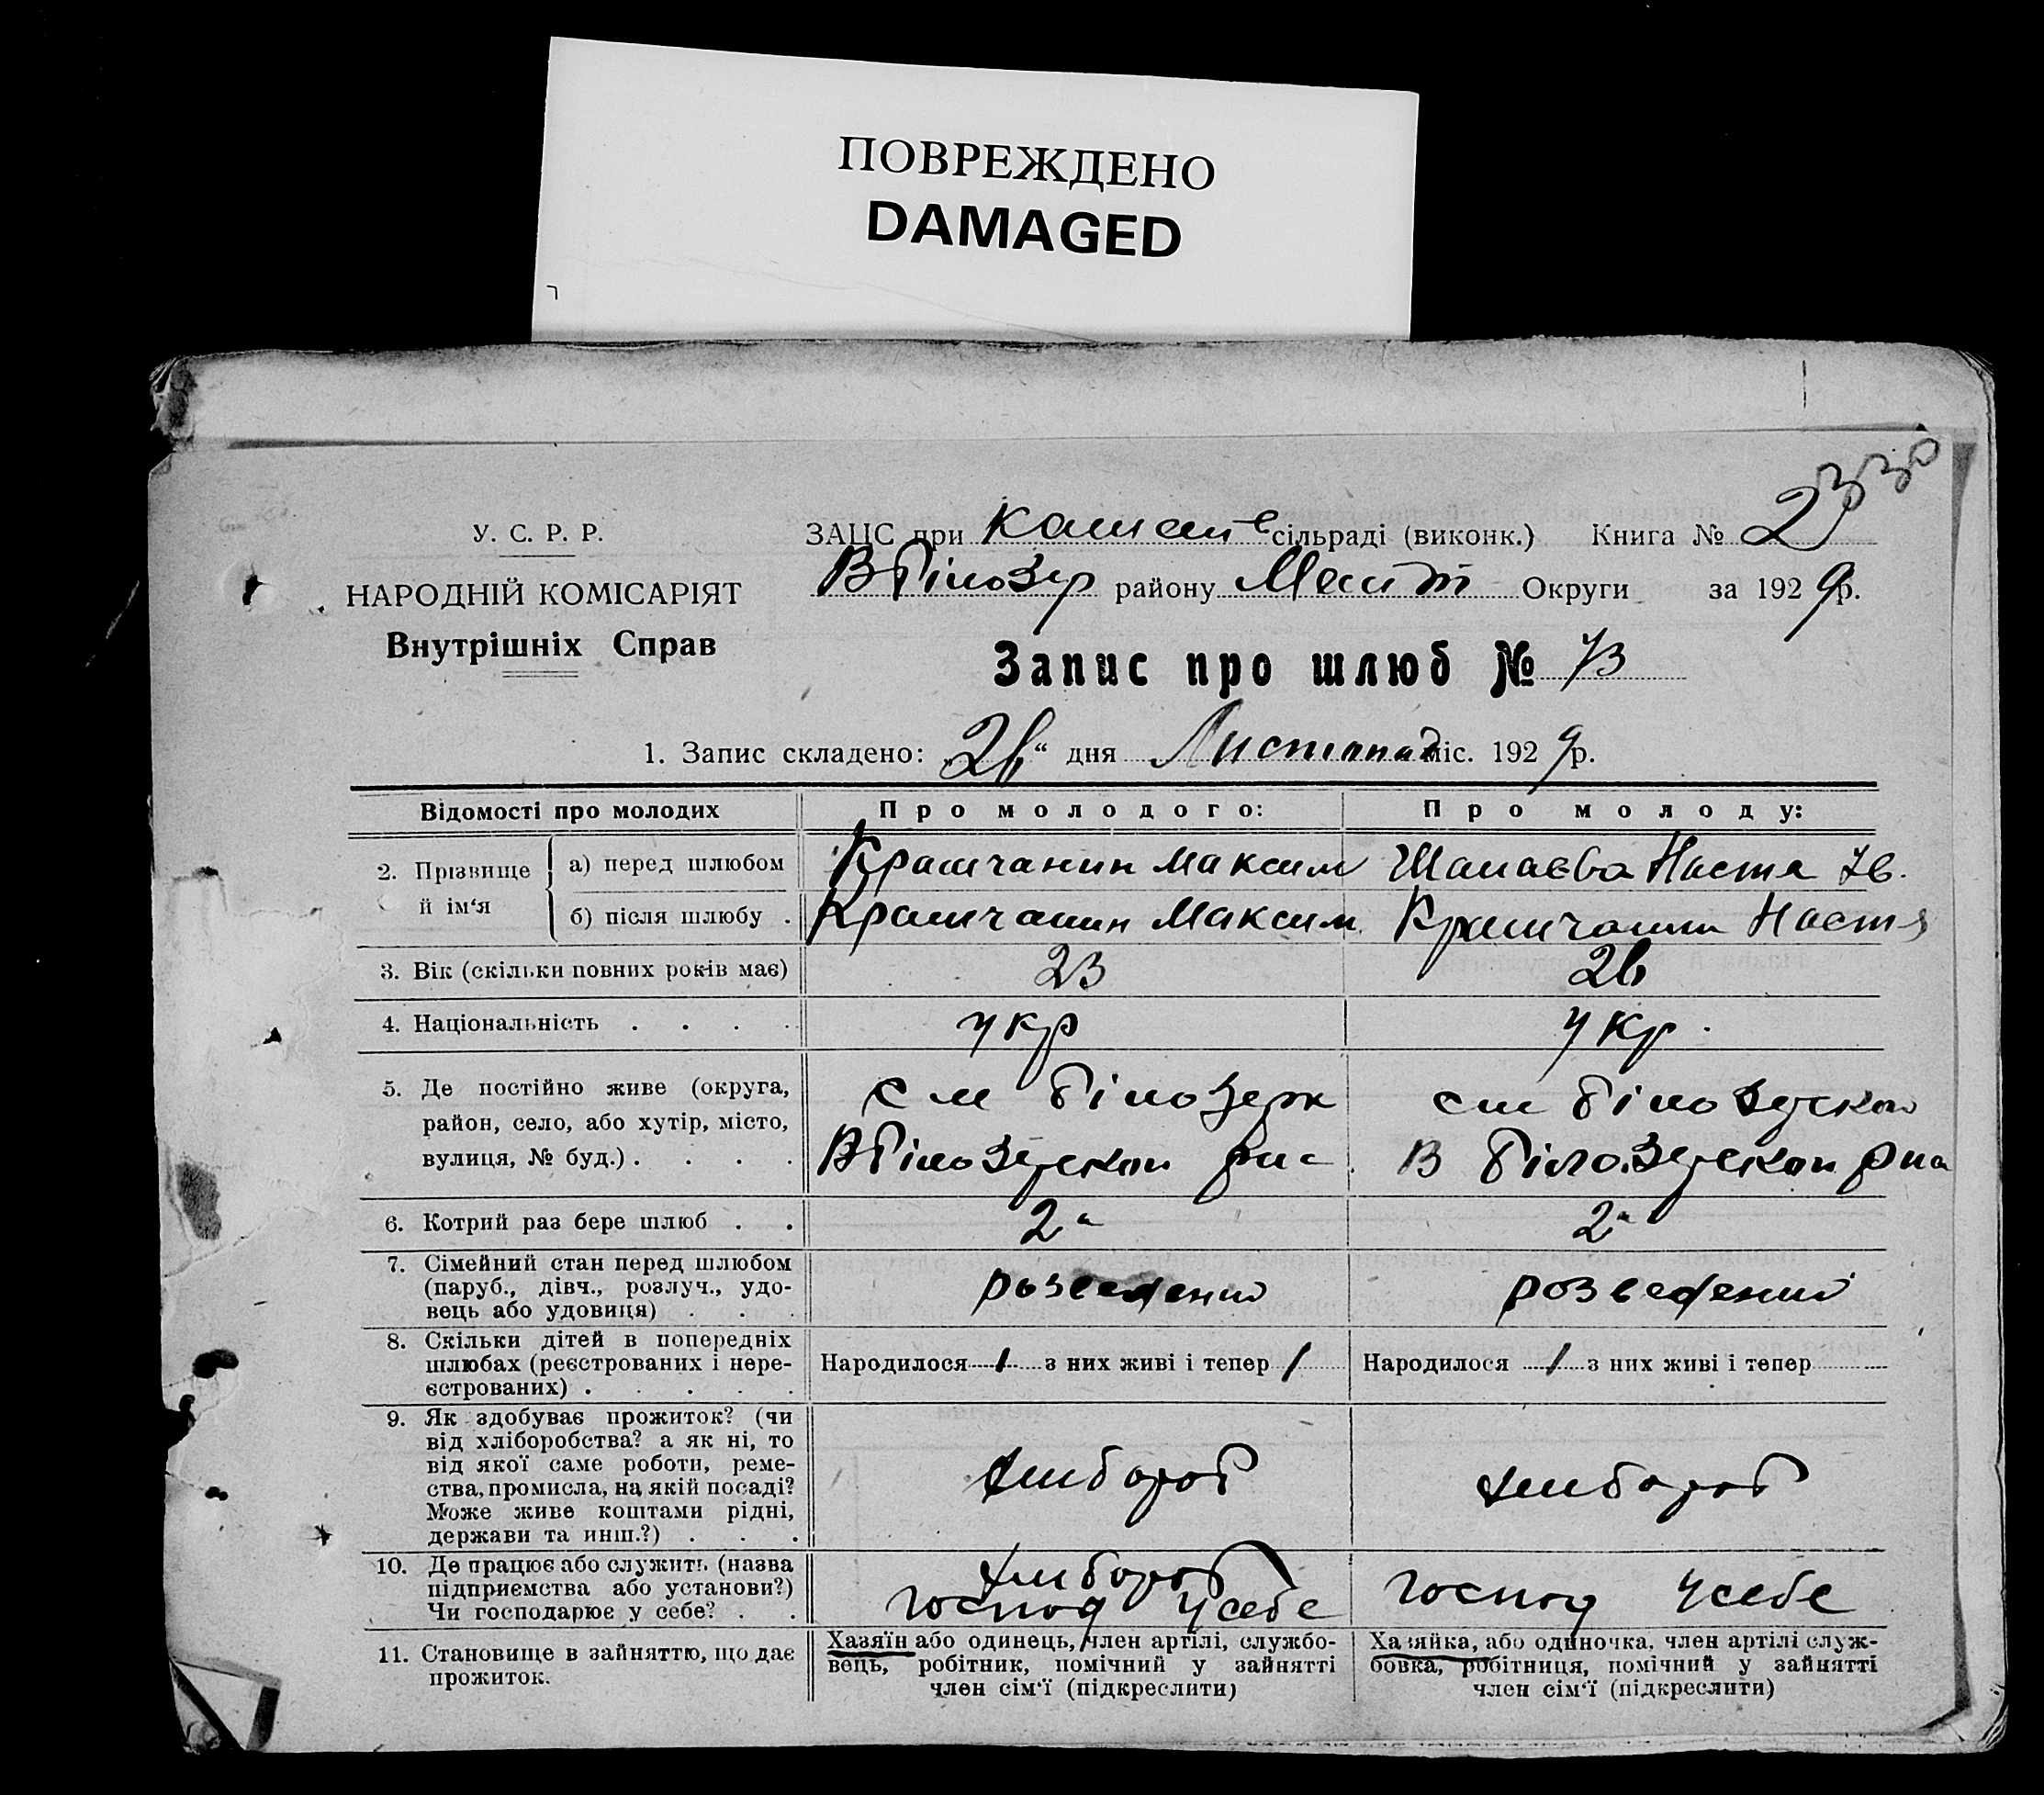 ПОВРЕЖДЕНО
DAMAGED
330
У. С. Р. Р.
ЗАЦС при сільраді (виконк.) Книга № 2
НАРОДНІЙ КОМІСАРІЯТ
району Округи за 1929р.
Внутрішніх Справ
Запис про шлюб № 73
1. Запис складено: „26“ дня Листопад міс. 1929р.
Відомості про молодих Про молодого: Про молоду:
2. Прізвище й ім‘я а) перед шлюбом Крамчанин Максим Настя Ів.
б) після шлюбу . Крамчанин Максим Крамчанин Настя
3. Вік (скільки повних років має) 23 26
4. Національність . . . . укр укр.
5. Де постійно живе (округа, Білозерк
район, село, або хутір, місто,
вулиця, № буд.) . . . .
6. Котрий раз бере шлюб . . 2й 2й
7. Сімейний стан перед шлюбом
(паруб., дівч., розлуч., удо- розведений розведений
вець або удовиця) . . .
8. Скільки дітей в попередніх
шлюбах (реєстрованих і нере- Народилося 1 з них живі і тепер 1 Народилося 1 з них живі і тепер
єстрованих) . . . . .
9. Як здобуває прожиток? (чи
від хліборобства? а як ні, то
від якої саме роботи, реме- хлибороб хлибороб
ства, промисла, на якій посаді?
Може живе коштами рідні,
держави та инш.?) . . .
10. Де працює або служить (назва хлибороб
підприємства або установи?) господ у себе господ у себе
Чи господарює у себе? . .
11. Становище в зайняттю, що дає прожиток.
Хазяїн або одинець, член артілі, службо-
вець, робітник, помічний у зайнятті
член сім‘ї (підкреслити)
Хазяйка, або одиночка, член артілі служ-
бовка, робітниця, помічний у зайнятті
член сім‘ї (підкреслити)